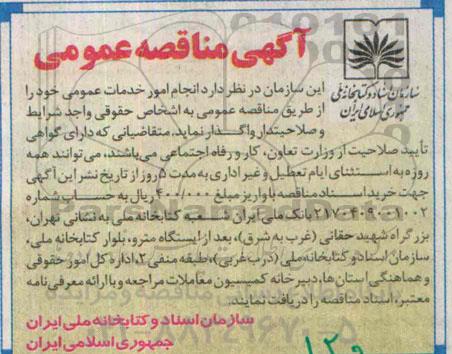 آگهی مناقصه عمومی
سازمان اسناد و کتابخانه ملی
جمهوری اسلامی ایران
این سازمان در نظر دارد انجام امور خدمات عمومی خود را
از طریق مناقصه عمومی به اشخاص حقوقی واجد شرایط
و صلاحیتدار واگذار نماید. متقاضیانی که دارای گواهی
تأیید صلاحیت از وزارت تعاون، کار و رفاه اجتماعی می‌باشند، می‌توانند همه
روزه به استثنای ایام تعطیل و غیر اداری به مدت ۵ روز از تاریخ نشر این آگهی
جهت خرید اسناد مناقصه با واریز مبلغ ۴۰۰/۰۰۰ ریال به حساب شماره
۲۱۷۰۴۰۹۰۰۱۰۰۲ بانک ملی ایران شعبه کتابخانه ملی به نشانی تهران،
بزرگراه شهید حقانی (غرب به شرق)، بعد از ایستگاه مترو، بلوار کتابخانه ملی،
سازمان اسناد و کتابخانه ملی (درب غربی)، طبقه منفی ۲، اداره کل امور حقوقی
و هماهنگی استان‌ها، دبیرخانه کمیسیون معاملات مراجعه و با ارائه معرفی نامه
معتبر، اسناد مناقصه را دریافت نمایند.
سازمان اسناد و کتابخانه ملی ایران
جمهوری اسلامی ایران